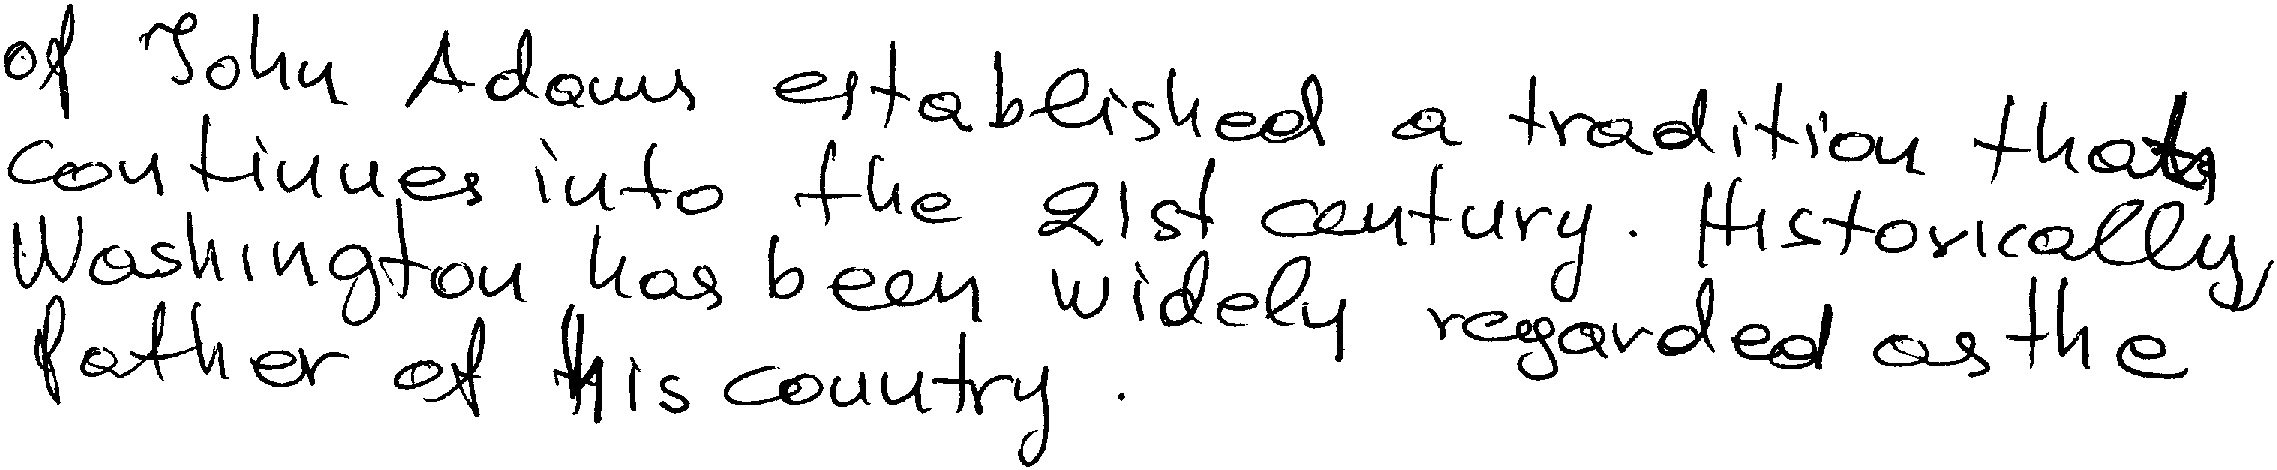 of John Adams established a tradition that
continues into the 21st century. Historically,
Washington has been widely regarded as the
father of his country.